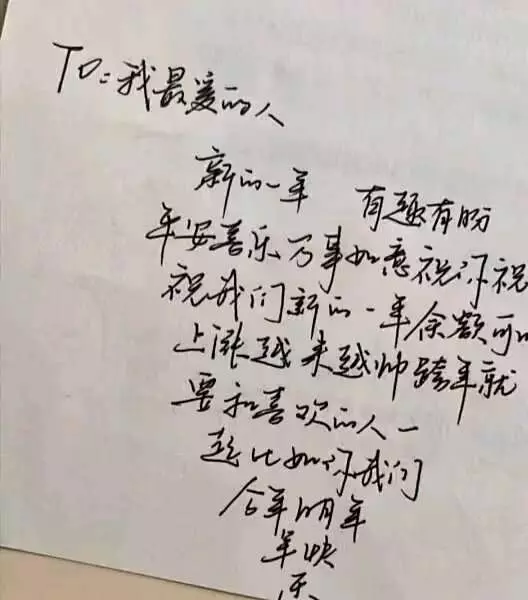 TO:我最爱的人
新的一年 有趣有盼
平安喜乐万事如意祝你祝
祝我们新的一年余额可以
上涨越来越帅跨年就
要和喜欢的人一
起比如你我们
今年明年
年快
乐